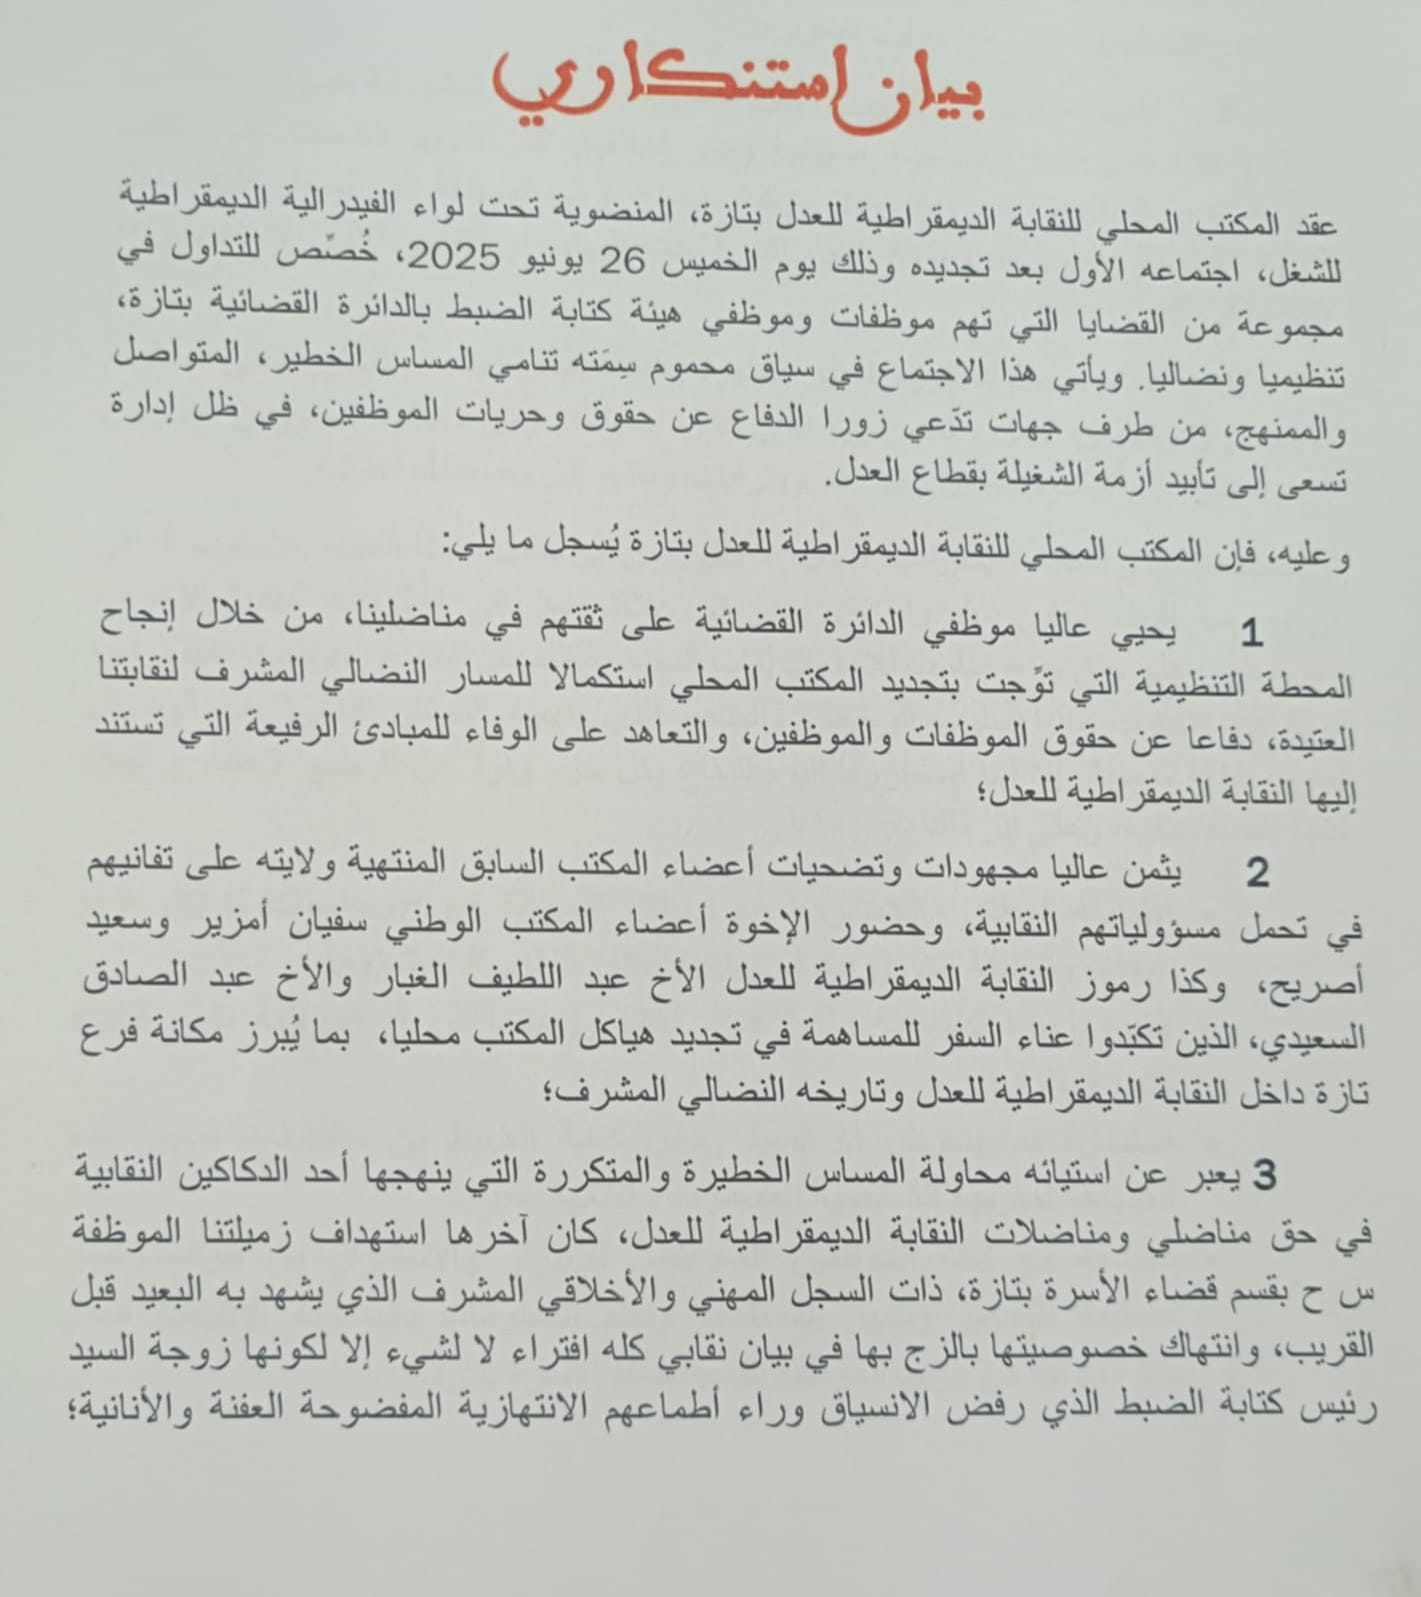 بيان استنكاري
عقد المكتب المحلي للنقابة الديمقراطية للعدل بتازة، المنضوية تحت لواء الفيدرالية الديمقراطية
للشغل، اجتماعه الأول بعد تجديده وذلك يوم الخميس 26 يونيو 2025، خُصّص للتداول في
مجموعة من القضايا التي تهم موظفات وموظفي هيئة كتابة الضبط بالدائرة القضائية بتازة،
تنظيميا ونضاليا. ويأتي هذا الاجتماع في سياق محموم سِمَته تنامي المساس الخطير، المتواصل
والممنهج، من طرف جهات تدّعي زورا الدفاع عن حقوق وحريات الموظفين، في ظل إدارة
تسعى إلى تأبيد أزمة الشغيلة بقطاع العدل.
وعليه، فإن المكتب المحلي للنقابة الديمقراطية للعدل بتازة يُسجل ما يلي:
1 يحيي عاليا موظفي الدائرة القضائية على ثقتهم في مناضلينا، من خلال إنجاح
المحطة التنظيمية التي توِّجت بتجديد المكتب المحلي استكمالا للمسار النضالي المشرف لنقابتنا
العتيدة، دفاعا عن حقوق الموظفات والموظفين، والتعاهد على الوفاء للمبادئ الرفيعة التي تستند
إليها النقابة الديمقراطية للعدل؛
2 يثمن عاليا مجهودات وتضحيات أعضاء المكتب السابق المنتهية ولايته على تفانيهم
في تحمل مسؤولياتهم النقابية، وحضور الإخوة أعضاء المكتب الوطني سفيان أمزير وسعيد
أصريح، وكذا رموز النقابة الديمقراطية للعدل الأخ عبد اللطيف الغبار والأخ عبد الصادق
السعيدي، الذين تكبّدوا عناء السفر للمساهمة في تجديد هياكل المكتب محليا، بما يُبرز مكانة فرع
تازة داخل النقابة الديمقراطية للعدل وتاريخه النضالي المشرف؛
3 يعبر عن استيائه محاولة المساس الخطيرة والمتكررة التي ينهجها أحد الدكاكين النقابية
في حق مناضلي ومناضلات النقابة الديمقراطية للعدل، كان آخرها استهداف زميلتنا الموظفة
س ح بقسم قضاء الأسرة بتازة، ذات السجل المهني والأخلاقي المشرف الذي يشهد به البعيد قبل
القريب، وانتهاك خصوصيتها بالزج بها في بيان نقابي كله افتراء لا لشيء إلا لكونها زوجة السيد
رئيس كتابة الضبط الذي رفض الانسياق وراء أطماعهم الانتهازية المفضوحة العفنة والأنانية؛